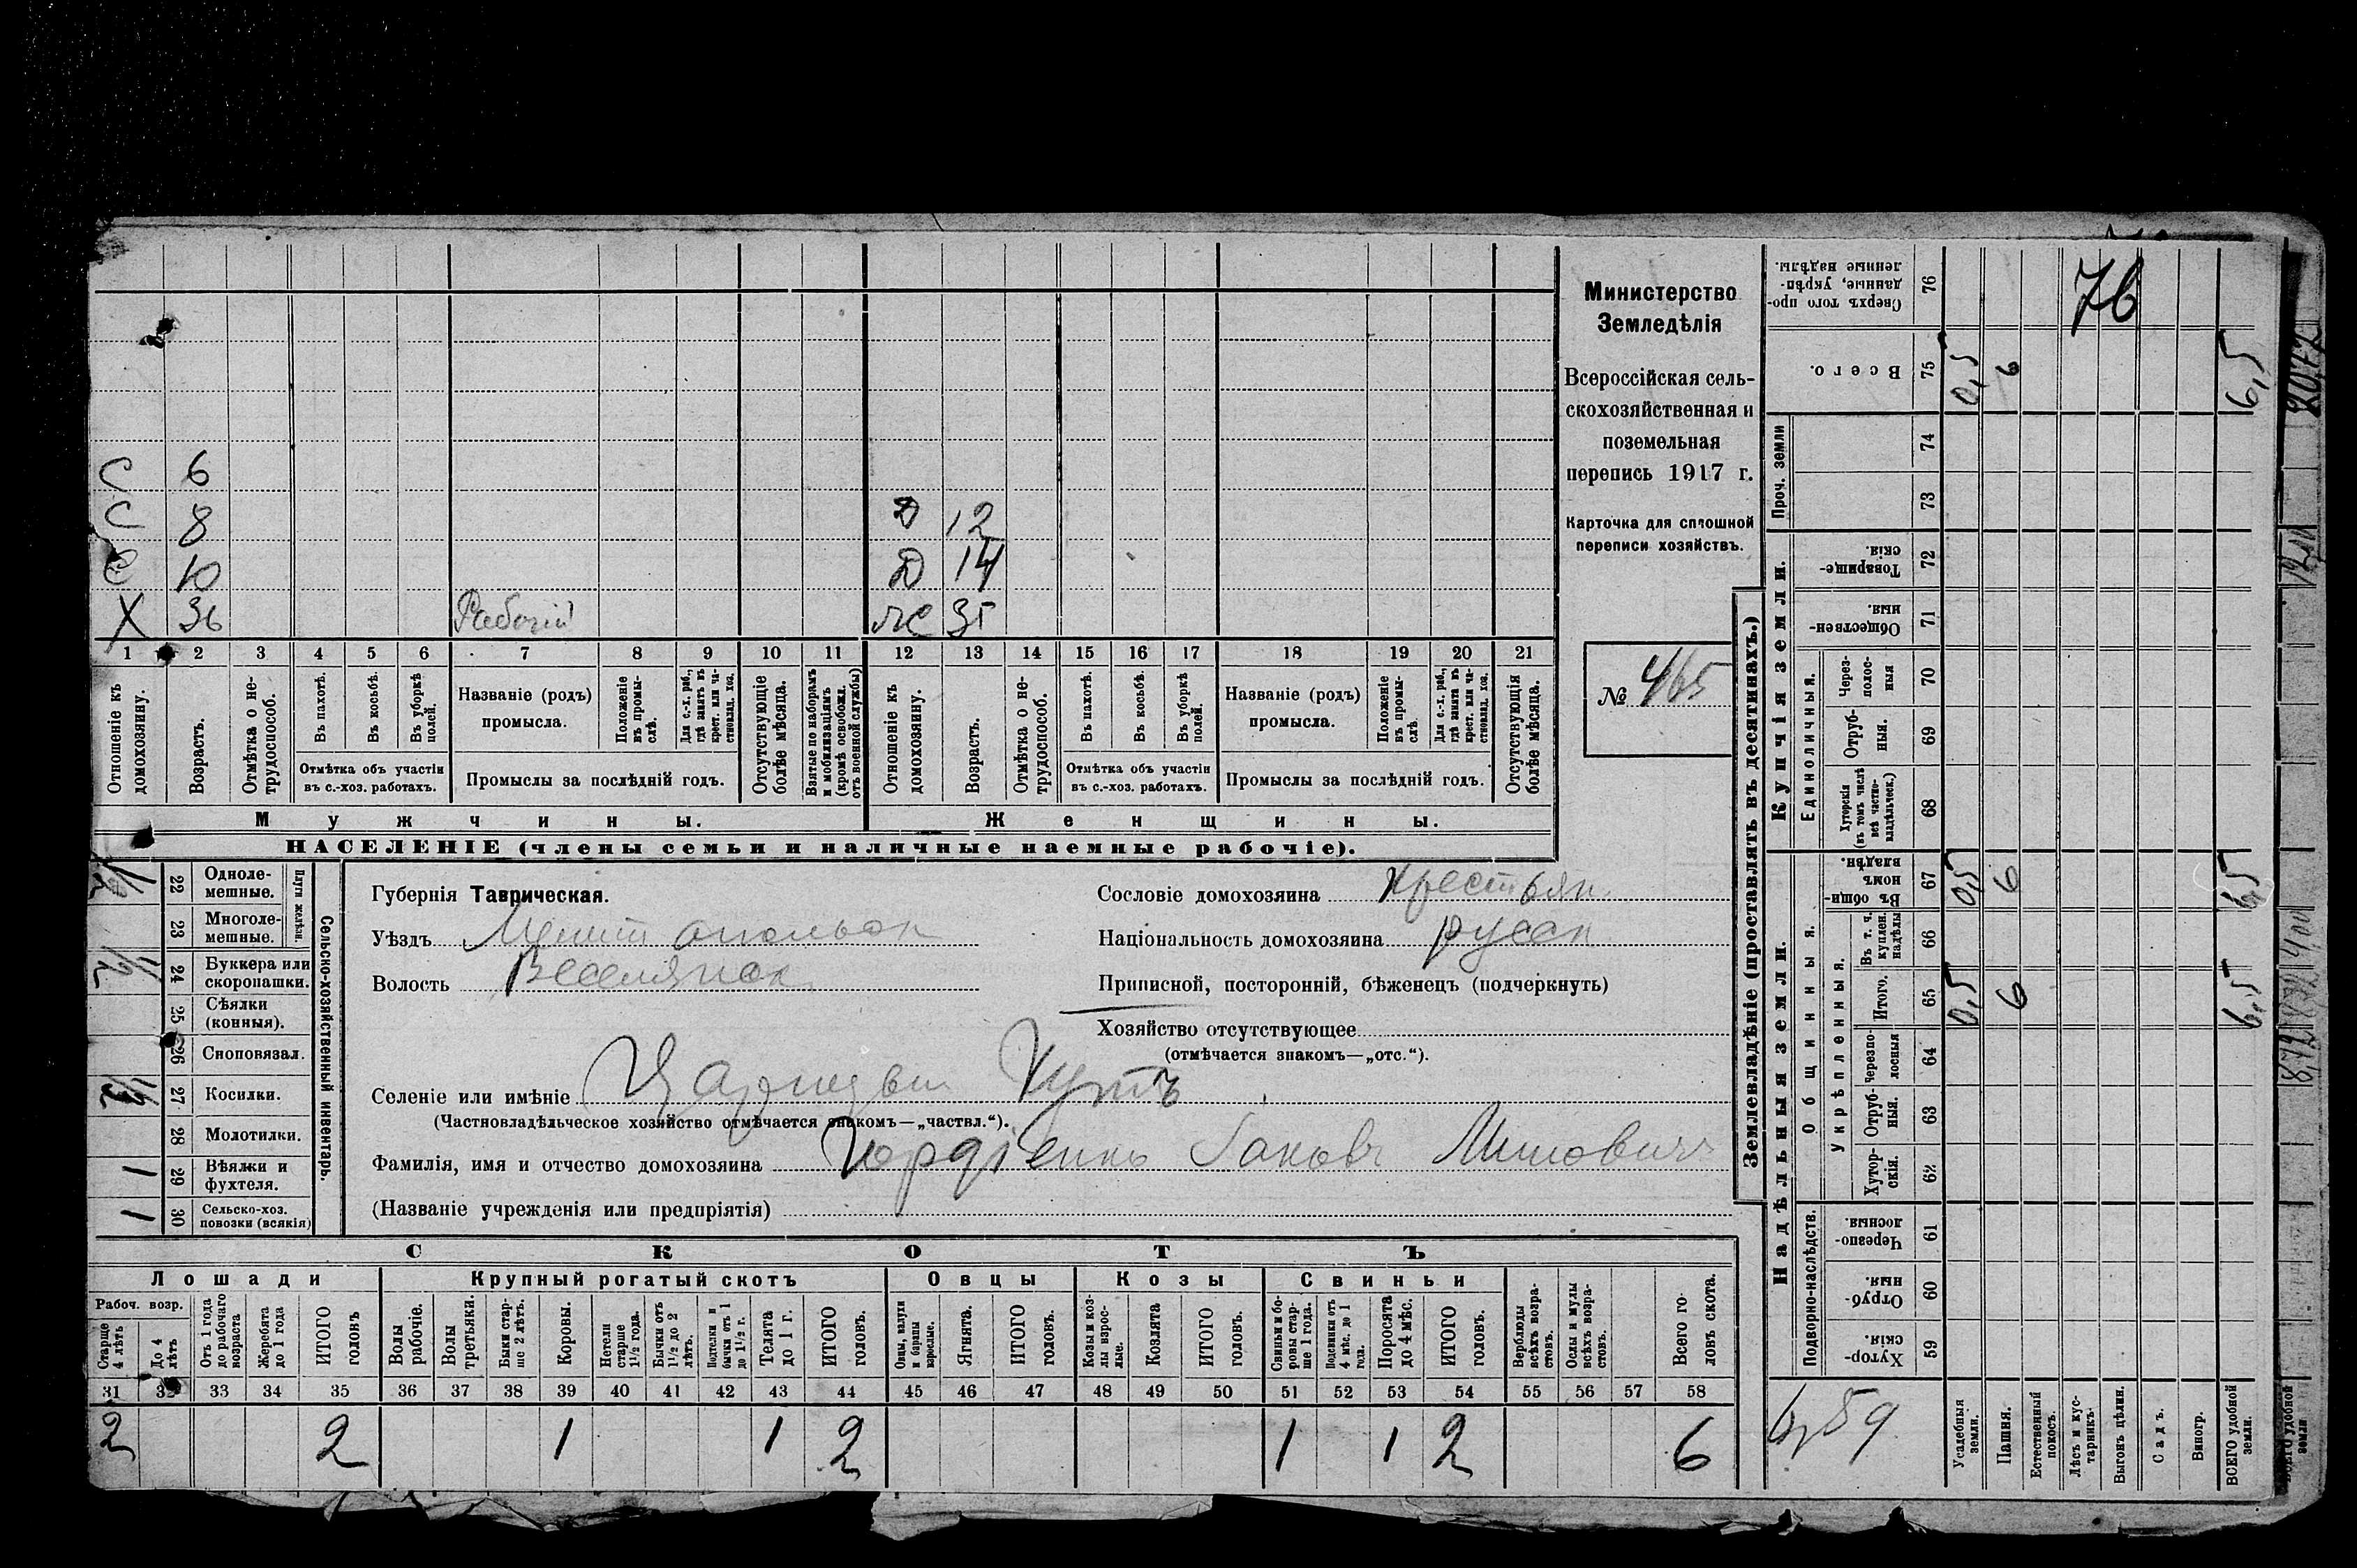 С 6
С 8 Д 12
С 10 Д 14
Х 36 Рабочій же 35
1 2 3 4 5 6 7 8 9 10 11 12 13 14 15 16 17 18 19 20 21
Отношеніе къ домохозяину.
Возрастъ.
Отмѣтка о не-трудоспособ.
Въ пахотѣ.
Въ косьбѣ.
Въ уборкѣ полей.
Отмѣтка объ участіи
въ с.-хоз. работахъ.
Названіе (родъ)
промысла.
Положеніе въ промы-слѣ.
Для с.-х. раб., гдѣ занятъ въ крест. или ча-стновлад. хоз.
Промыслы за послѣдній годъ.
Отсутствующіе болѣе мѣсяца.
Взятые по наборамъ и мобилизаціямъ (кромѣ освобожд. отъ военной службы)
Отношеніе къ домохозяину.
Возрастъ.
Отмѣтка о не-трудоспособ.
Въ пахотѣ.
Въ косьбѣ.
Въ уборкѣ полей.
Отмѣтка объ участіи
въ с.-хоз. работахъ.
Названіе (родъ)
промысла.
Положеніе въ промы-слѣ.
Для с.-х. раб., гдѣ занята въ крест. или ча-стновлад. хоз.
Промыслы за послѣдній годъ.
Отсутствующія болѣе мѣсяца.
Мужчины. Женщины.
НАСЕЛЕНІЕ (члены семьи и наличные наемные рабочіе).
Министерство
Земледѣлія
Всероссійская сель-
скохозяйственная и
поземельная
перепись 1917 г.
Карточка для сплошной
переписи хозяйствъ.
№ 465
Сельско-хозяйственный инвентарь.
Плуги желѣзн.
22 Одноле-мешные.
23 Многоле-мешные.
1/2 24 Буккера или скоропашки.
25 Сѣялки (конныя).
26 Сноповязал.
1/2 27 Косилки.
28 Молотилки.
1 29 Вѣялки и фухтеля.
1 30 Сельско-хоз. повозки (всякія)
Губернія Таврическая.
Уѣздъ Мелитопольск
Волость Веселянск
Сословіе домохозяина крестьян.
Національность домохозяина русск
Приписной, посторонній, бѣженецъ (подчеркнуть)
Хозяйство отсутствующее
(отмѣчается знакомъ—„отс.“).
Селеніе или имѣніе Царицынъ Кутъ
(Частновладѣльческое хозяйство отмѣчается знакомъ—„частвл.“).
Фамилія, имя и отчество домохозяина Гордіенко Іаковъ
(Названіе учрежденія или предпріятія)
СКОТЪ
Лошади Крупный рогатый скотъ Овцы Козы Свиньи
Рабоч. возр.
Старше 4 лѣтъ
До 4 лѣтъ
Отъ 1 года до рабочаго возраста
Жеребята до 1 года
ИТОГО головъ
Волы рабочіе.
Волы третьяки.
Быки стар-ше 2 лѣтъ.
Коровы.
Нетели старше 1½ года.
Бычки отъ 1½ до 2 лѣтъ.
Подтелки и бычки отъ 1 до 1½ г.
Телята до 1 г.
ИТОГО головъ.
Овцы, валухи и бараны взрослые.
Ягнята.
ИТОГО головъ.
Козы и коз-лы взрос-лые.
Козлята
ИТОГО головъ.
Свиньи и бо-ровы стар-ше 1 года.
Подсвинки отъ 4 мѣс. до 1 года.
Поросята до 4 мѣс.
ИТОГО головъ.
Верблюды всѣхъ возра-стовъ.
Ослы и мулы всѣхъ возра-стовъ.
Всего го-ловъ скота.
31 32 33 34 35 36 37 38 39 40 41 42 43 44 45 46 47 48 49 50 51 52 53 54 55 56 57 58
2 2 1 1 2 1 1 2 6
Землевладѣніе (проставлять въ десятинахъ.)
Надѣльныя земли. Купчія земли.
Проч. земли
Подворно-наслѣдств.
Общинныя.
Укрѣпленныя.
Единоличныя.
Сверхъ того про-данные, укрѣп-ленные надѣлы. 76
76
Всего. 75 0,5 6 6,5
74
73
Товарище-скія. 72
Обществен-ныя. 71
Через-полос-ныя 70
Отруб-ныя. 69
Хуторскія (въ томъ числѣ всѣ частно-владѣльческ.) 68
Въ общи-номъ владѣн. 67 0,5 6 6,5
Въ т. ч. куплен. надѣлы 66
Итого. 65 0,5 6 6,5
Черезпо-лосныя 64
Отруб-ныя. 63
Хутор-скія. 62
Черезпо-лосныя. 61
Отруб-ныя. 60
Хутор-скія. 59
Усадебныя земли.
Пашня.
Естественный покосъ.
Лѣсъ и кус-тарникъ.
Выгонъ цѣлин.
Садъ.
Виногр.
ВСЕГО удобной земли.
ВСЕГО удобной земли